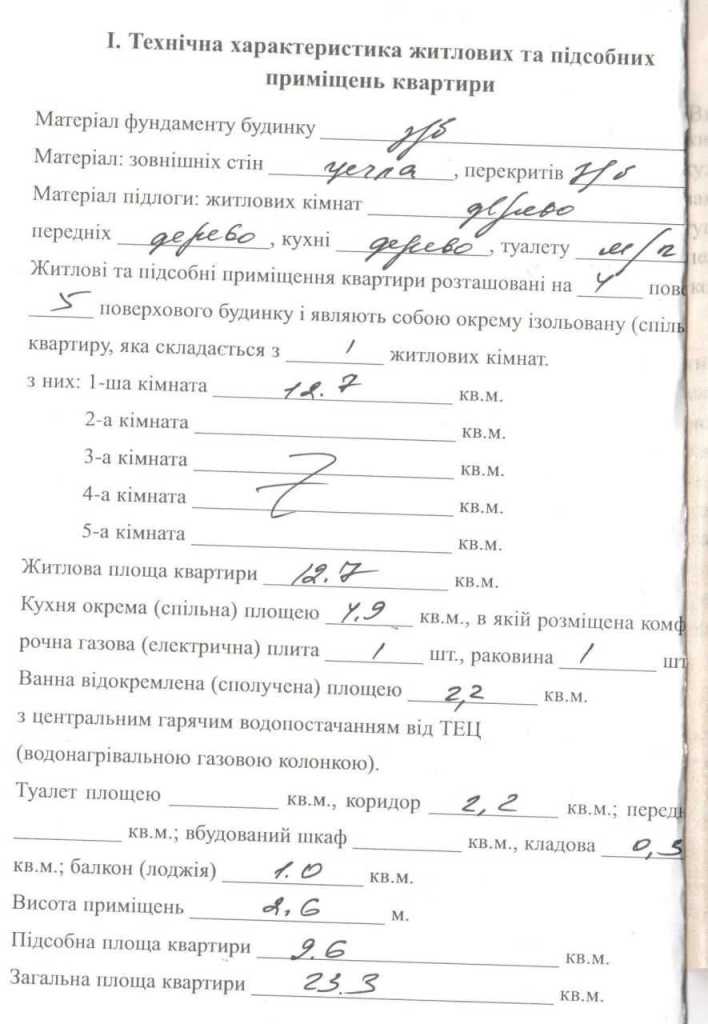 I. Технічна характеристика житлових та підсобних
приміщень квартири
Матеріал фундаменту будинку з/б
Матеріал: зовнішніх стін цегла, перекритів з/б
Матеріал підлоги: житлових кімнат дерево
передніх дерево, кухні дерево, туалету м/п
Житлові та підсобні приміщення квартири розташовані на 4 пове
5 поверхового будинку і являють собою окрему ізольовану (спіль
квартиру, яка складається з 1 житлових кімнат.
з них: 1-ша кімната 12.7 кв.м.
2-а кімната кв.м.
3-а кімната кв.м.
4-а кімната кв.м.
5-а кімната кв.м.
Житлова площа квартири 12.7 кв.м.
Кухня окрема (спільна) площею 4.9 кв.м., в якій розміщена комф
рочна газова (електрична) плита 1 шт., раковина 1 шт
Ванна відокремлена (сполучена) площею 2,2 кв.м.
з центральним гарячим водопостачанням від ТЕЦ
(водонагрівальною газовою колонкою).
Туалет площею кв.м., коридор 2,2 кв.м.; передн
кв.м.; вбудований шкаф кв.м., кладова 0,3
кв.м.; балкон (лоджія) 1.0 кв.м.
Висота приміщень 2.6 м.
Підсобна площа квартири 9.6 кв.м.
Загальна площа квартири 23.3 кв.м.